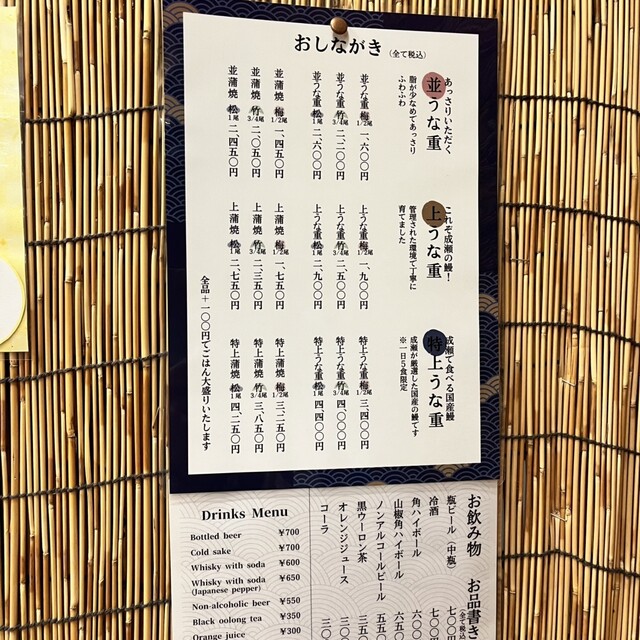 おしながき（全て税込）
あっさりいただく
並うな重
脂が少なめであっさり
ふわふわ
並うな重 梅 1/2尾 一、六〇〇円
並うな重 竹 3/4尾 二、二〇〇円
並うな重 松 1尾 二、六〇〇円
並蒲焼 梅 1/2尾 一、四五〇円
並蒲焼 竹 3/4尾 二、〇五〇円
並蒲焼 松 1尾 二、四五〇円
これぞ成瀬の鰻！
上うな重
管理された環境で丁寧に
育てました
上うな重 梅 1/2尾 一、九〇〇円
上うな重 竹 3/4尾 二、五〇〇円
上うな重 松 1尾 二、九〇〇円
上蒲焼 梅 1/2尾 一、七五〇円
上蒲焼 竹 3/4尾 二、三五〇円
上蒲焼 松 1尾 二、七五〇円
成瀬で食べる国産鰻
特上うな重
成瀬が厳選した国産の鰻です
※一日5食限定
特上うな重 梅 1/2尾 三、四〇〇円
特上うな重 竹 3/4尾 四、〇〇〇円
特上うな重 松 1尾 四、四〇〇円
特上蒲焼 梅 1/2尾 三、二五〇円
特上蒲焼 竹 3/4尾 三、八五〇円
特上蒲焼 松 1尾 四、二五〇円
全品＋一〇〇円でごはん大盛りいたします
お飲み物 お品書き
（全て税込
瓶ビール（中瓶） 七〇〇
冷酒 七〇〇
角ハイボール 六〇
山椒角ハイボール 六五
ノンアルコールビール 五五
黒ウーロン茶 三五
オレンジジュース 三〇
コーラ 三〇
Drinks Menu
Bottled beer ¥700
Cold sake ¥700
Whisky with soda ¥600
Whisky with soda ¥650
(Japanese pepper)
Non-alcoholic beer ¥550
Black oolong tea ¥350
Orange juice ¥300